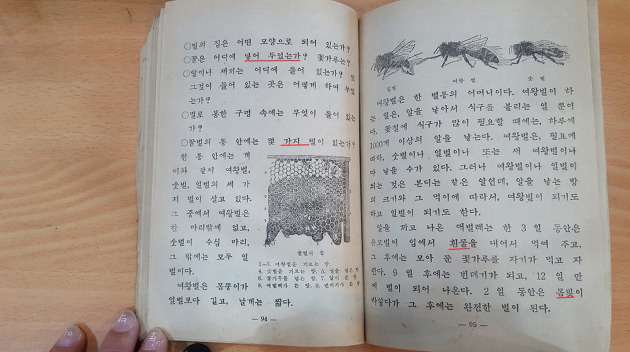 ○벌의 집은 어떤 모양으로 되어 있는가?
○꿀은 어디에 넣어 두었는가? 꽃가루는?
○알이나 새끼는 어디에 들어 있는가? 또
그것이 들어 있는 곳은 어떻게 하여 두었
는가?
○밀로 봉한 구멍 속에는 무엇이 들어 있는
가?
○꿀벌의 통 안에는 몇 가지 벌이 있는가?
한 통 안에는 께
미와 같이 여왕벌,
숫벌, 일벌의 세 가
지 벌이 살고 있다.
그 중에서 여왕벌은
한 마리밖에 없고,
숫벌이 수십 마리,
그 밖에는 모두 일
벌이다.
여왕벌은 몸뚱이가
일벌보다 길고, 날개는 짧다.
꿀벌의 집
1~3. 여왕벌을 기르는 방
— 94 —
일벌
여왕 벌
숫 벌
여왕벌은 한 벌통의 어머니이다. 여왕벌이 하
는 일은, 알을 낳아서 식구를 불리는 일 뿐이
다. 꽃철에 식구가 많이 필요할 때에는, 하루에
1000개 이상의 알을 낳는다. 여왕벌은, 필요에
따라, 숫벌이나 일벌이나 또는 새 여왕벌이나
다 낳을 수가 있다. 그러나 여왕벌이나 일벌이
되는 것은 본디는 같은 알인데, 알을 낳는 방
의 크기와 그 먹이에 따라서, 여왕벌이 되기도
하고 일벌이 되기도 한다.
알을 까고 나온 애벌레는 한 3일 동안은
유모벌이 입에서 흰물을 내어서 먹여 주고,
그 후에는 모아 둔 꽃가루를 자기가 먹고 자
란다. 9일 후에는 번데기가 되고, 12일 만
에 벌이 되어 나온다. 2일 동안은 몸빛이
하얗다가 그 후에는 완전한 벌이 된다.
— 95 —